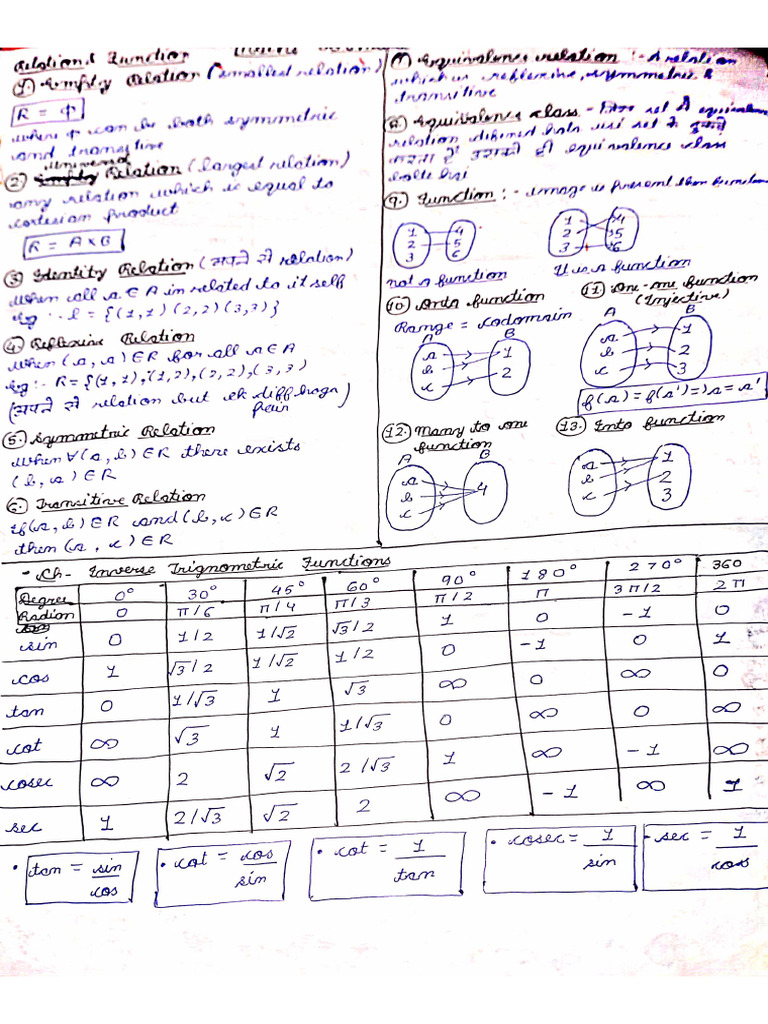 Relation & Function
1) Empty Relation (smallest relation)
R = Φ
where Φ can be both symmetric
and transitive
2) Universal Relation (largest relation)
any relation which is equal to
cartesian product
R = A×B
3) Identity Relation (अपने से relation)
When all a ∈ A in related to it self
eg :- l = {(1,1) (2,2) (3,3)}
4) Reflexive Relation
when (a, a) ∈ R for all a ∈ A
eg:- R = {(1,1),(1,2),(2,2),(3,3)
(अपने से relation but ek diff hoga)
5) Symmetric Relation
when ∀(a, b) ∈ R there exists
(b, a) ∈ R
6) Transitive Relation
if (a, b) ∈ R and (b, c) ∈ R
then (a, c) ∈ R
7) Equivalence relation :- A relation
which is reflexive, symmetric &
transitive
8) Equivalence class - जिस set से equivalence
relation defined hota usi set के
करता है उसको ही equivalence class
bolte hai
9) Function :- image is present then function
1 4
2 5
3 6
1 4
2 5
3 6
not a function
It is a function
10) Onto function
Range = codomain
A B
a 1
b 2
c
11) One-one function
(Injective)
A B
a 1
b 2
c 3
f(a) = f(a') => a = a'
12) Many to one
function
A B
a
b 4
c
13.) Into function
a 1
b 2
c 3
- Ch- Inverse Trignometric Functions
Degree 0° 30° 45° 60° 90° 180° 270° 360
Radian 0 π/6 π/4 π/3 π/2 π 3π/2 2π
sin 0 1/2 1/√2 √3/2 1 0 -1 0
cos 1 √3/2 1/√2 1/2 0 -1 0 1
tan 0 1/√3 1 √3 ∞ 0 ∞ 0
cot ∞ √3 1 1/√3 0 ∞ 0 ∞
cosec ∞ 2 √2 2/√3 1 ∞ -1 ∞
sec 1 2/√3 √2 2 ∞ -1 ∞ 1
• tan = sin/cos
• cot = cos/sin
• cot = 1/tan
• cosec = 1/sin
- sec = 1/cos